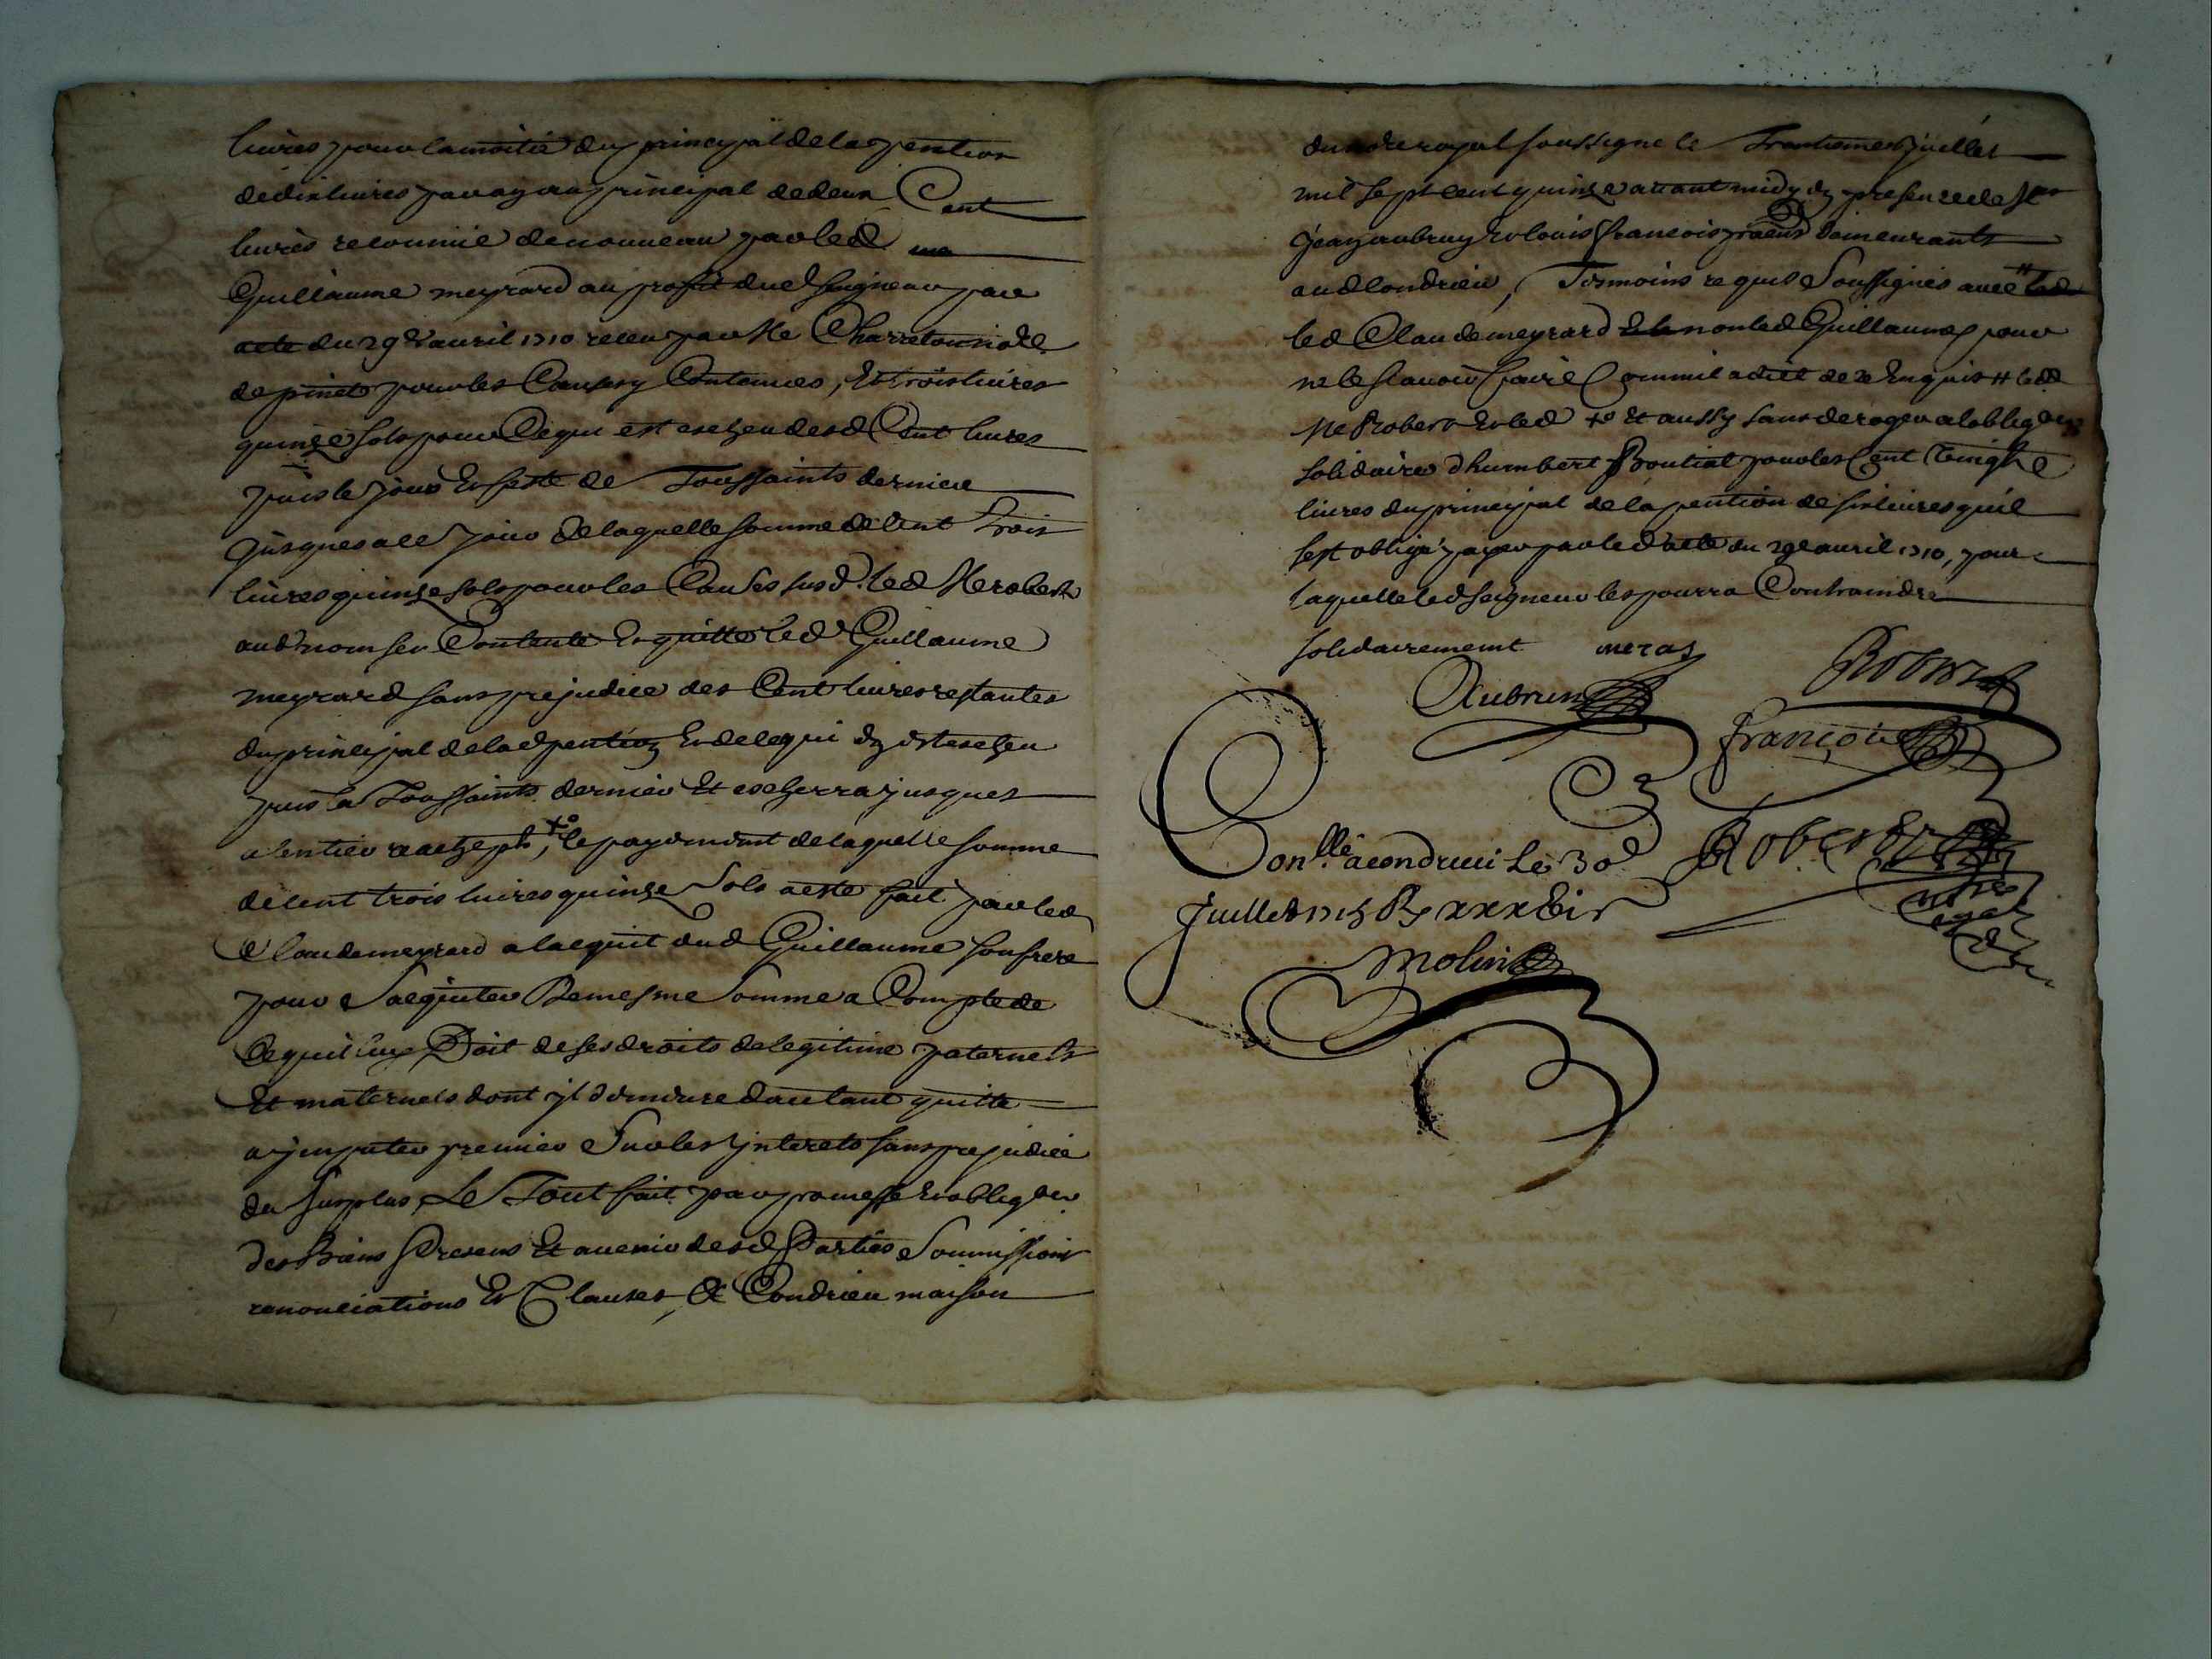 livres pour la moitié du principal de la pention
de dix livres par an au principal de deux Cent
livres reconnüe de nouveau par led me
Guillaume meyrard au profit dud seigneur par
acte du 29e avril 1710 receu par Me Charreton nore
de pinet pour les Causes y Contenues, Et trois livres
quinze sols pour Ce qui est escheu desd Cent livres
puis le jour Et feste de Toussaints dernier
jusques a ce jour de laquelle somme de Cent Trois
livres quinze sols pour les Causes susd. led Me robert
aud nom sen Contente Et quitte led Guillaume
meyrard sans prejudice des Cent livres restantes
du principal de lad pention Et de ce qui en est escheu
puis la Toussaints dernier Et escherra jusques
a lentier rachept +o, le payement de laquelle somme
de Cent trois livres quinze Sols a este fait par led
Claude meyrard a lacquit dud Guillaume son frere
pour Sacquiter De mesme Somme a Compte de
Ce quil luy Doit de ses droits de legitime paternels
Et maternels dont yl demeure dautant quitte
a jmputer premier Sur les jnterets sans prejudice
du surplus, Le Tout fait par promesse Et obligaon
des Biens Presens Et avenir desd Parties Soumissions
renonciations Et Clauses, A Condrieu maison
du nore royal soussigne le Trantieme juillet
mil sept cent quinze avant midy en presence de srs
Jean aubrun Et louis francois praens demeurants
aud Condrieu, Tesmoins requis Soussignés avec # led
led Claude meyrard Et non led Guillaume pour
ne le scavoir faire Comme il a dit de ce Enquis # led
Me Robert Et led +o Et aussy sans deroger a lobligaon
solidaire dhumbert Boutiat pour les Cent Vingt
livres du principal de la pention de six livres quil
sest obligé payer par led acte du 29e avril 1710, pour
laquelle led seigneur les pourra Contraindre
solidairement meras
Robert
Aubrun
francois
Conllé a condrieu Le 30e
Robert
juillet 1715 R
molin